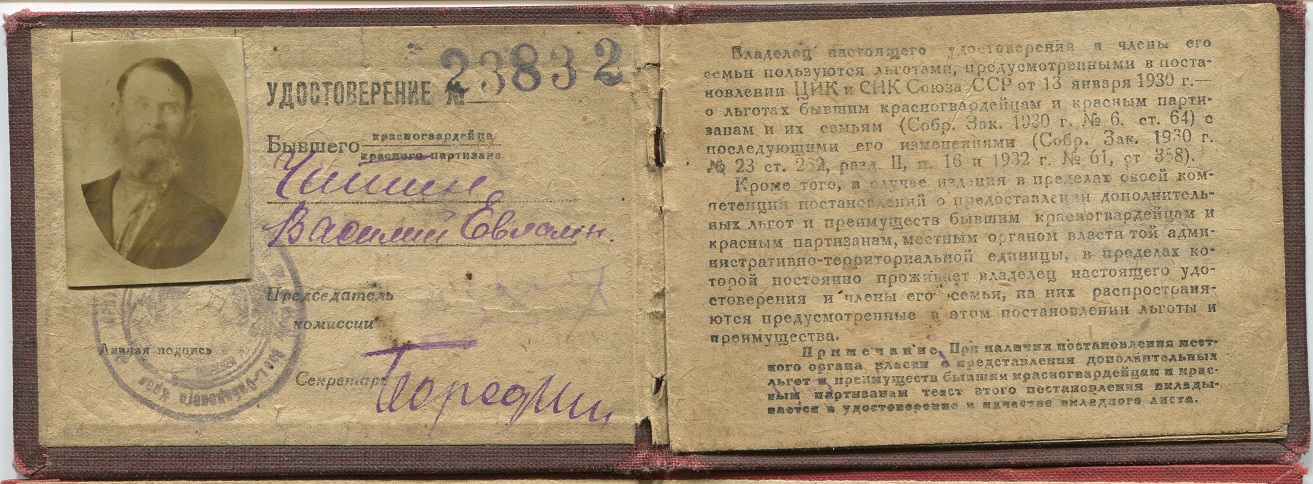 23832
УДОСТОВЕРЕНИЕ №
Бывшего красногвардейца
красного партизана
Чишин
Василий Евлами.
Председатель
комиссии
Личная подпись
Секретарь
Владелец настоящего удостоверения и члены его
семьи пользуются льготами, предусмотренными в поста-
новлении ЦИК и СНК Союза ССР от 13 января 1930 г.—
о льготах бывшим красногвардейцам и красным парти-
занам и их семьям (Собр. Зак. 1930 г. № 6. ст. 64) с
последующими его изменениями (Собр. Зак. 1930 г.
№ 23 ст. 252, разд. II, п. 16 и 1932 г. № 61, ст 358).
Кроме того, в случае издания в пределах своей ком-
петенции постановлений о предоставлении дополнитель-
ных льгот и преимуществ бывшим красногвардейцам и
красным партизанам, местным органом власти той адми-
нистративно-территориальной единицы, в пределах ко-
торой постоянно проживает владелец настоящего удо-
стоверения и члены его семьи, на них распространя-
ются предусмотренные в этом постановлении льготы и
преимущества.
Примечание. При наличии постановления мест-
ного органа власти о предоставлении дополнительных
льгот и преимуществ бывшим красногвардейцам и крас-
ным партизанам текст этого постановления вклады-
вается в удостоверение в качестве вкладного листа.